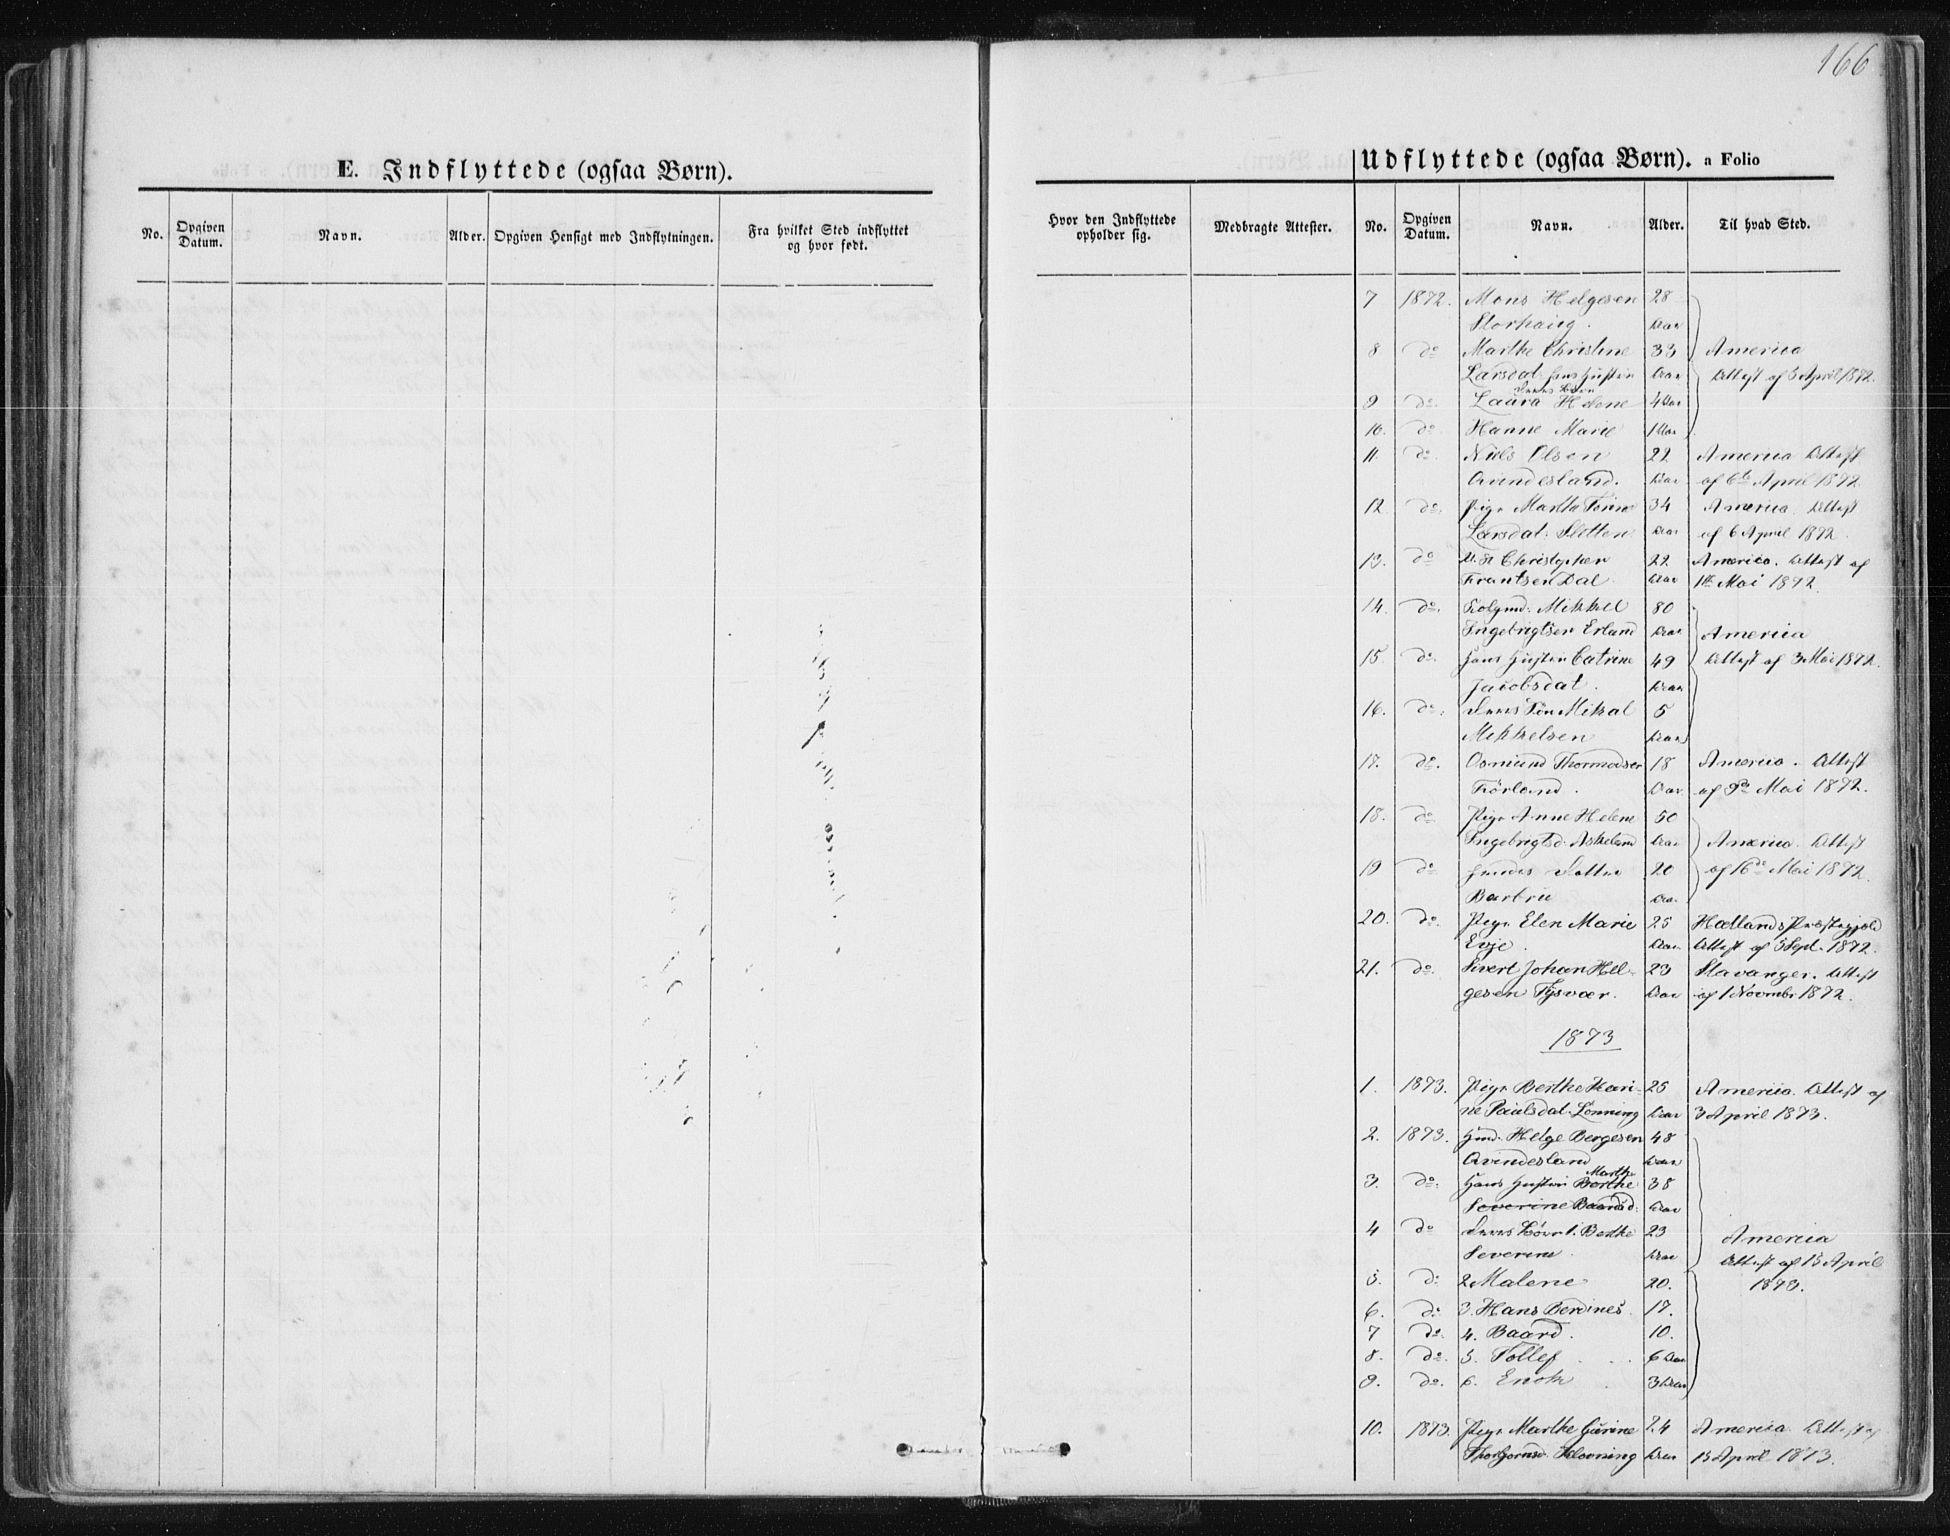 166
E. Indflyttede (ogsaa Børn).
No.
Opgiven Datum.
Navn.
Alder.
Opgiven Hensigt med Indflytningen.
Fra hvilket Sted indflyttet og hvor født.
Udflyttede (ogsaa Børn). a Folio
Hvor den Indflyttede opholder sig.
Medbragte Attester.
No.
Opgiven Datum.
Navn.
Alder.
Til hvad Sted.
7 1872. Mons Helgesen 28
Storhaug. Aar
8 do Marthe Christine 33 America
Larsdat: hans Hustru Aar Attest af 5 April 1872.
Deres Børn
9 do. Laura Helene 4 Aar
10. do. Hanne Marie 1 Aar
11. do. Niels Olsen 22 America Attest
Qvindesland. Aar af 6te April 1872.
12. do. Pige Martha 34 America. Attest
Larsdat: Sletten Aar af 6 April 1872.
13. do Christopher 22 America. Attest af
Frantsen Dal Aar 1ste Mai 1872.
14. do. Mikkel 80
Ingebrigtsen Erland Aar America
15. do. hans Hustru Catrine 49 Attest af 3 Mai 1872.
Jacobsdat. Aar
16. do. Deres Søn Mikal 5
Mikkelsen Aar
17. do. Osmund Thormodsen 18 America. Attest
Førland. Aar af Mai 1872.
18. do Pige Anne Helene 50
Ingebrigtsd. Askeland Aar America. Attest
19 do hendes Datter 20 af 16de Mai 1872.
Barbru Aar
20. do. Pige Elen Marie 25 Hætlands Præstegjeld
Evje. Aar Attest af 5 Sept. 1872.
21. do. Sivert Johan Hel- 23 Stavanger. Attest
gesen Tysvær. Aar af 1 Novembr 1872.
1873
1. 1873. Pige Berthe Kari- 25 America. Attest af
ne Paulsdat. Lønning Aar 3 April 1873.
2. 1873. Gmd. Helge Bergesen 48
Qvindesland Aar
Marthe
3. do. hans Hustru Berthe 38
Severine Baardsd: Aar
4 do Deres Børn 1. Berthe 23 America
Severine. Aar Attest af 15 April
5. do 2 Malene 20. 1873.
6. do 3. Hans Berdines. 17.
7 do. 4. Baard. 10.
8. do. 5. Tollef 6 Aar
9. do. 6. Enok 3 Aar
10. 1873. Pige Marthe Gurine 24 America. Attest af
Thorbjornsd. Klovning Aar 15 April 1873.